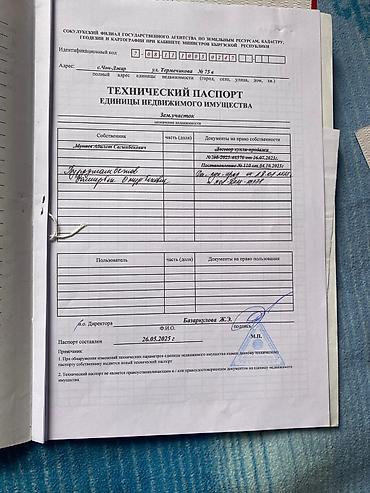 СОКУЛУКСКИЙ ФИЛИАЛ ГОСУДАРСТВЕННОГО АГЕНТСТВА ПО ЗЕМЕЛЬНЫМ РЕСУРСАМ, КАДАСТРУ,
ГЕОДЕЗИИ И КАРТОГРАФИИ ПРИ КАБИНЕТЕ МИНИСТРОВ КЫРГЫЗСКОЙ РЕСПУБЛИКИ
Идентификационный код 7-08-11-1003-0247
Адрес: с.Чон-Джар ул. Термечикова № 75 в
полный адрес единицы недвижимости (город, село, улица, дом, кв.)
ТЕХНИЧЕСКИЙ ПАСПОРТ
ЕДИНИЦЫ НЕДВИЖИМОГО ИМУЩЕСТВА
Зем.участок
назначение недвижимости
Собственник часть (доля) Документы на право собственности
Договор купли-продажи
от 16.07.2023г.
Постановление №110 от 04.10.2023г.
Пользователь часть (доля) Документы на право пользования
и.о. Директора Базаркулова Ж.Э.
Ф.И.О. подпись
Паспорт составлен 26.05.2025 г М.П.
Примечание
1. При обнаружении изменений технических параметров единицы недвижимого имущества взамен данному техническому
паспорту собственнику выдается новый технический паспорт
2. Технический паспорт не является правоустанавливающим и / или правоудостоверяющим документом на единицу недвижимого
имущества